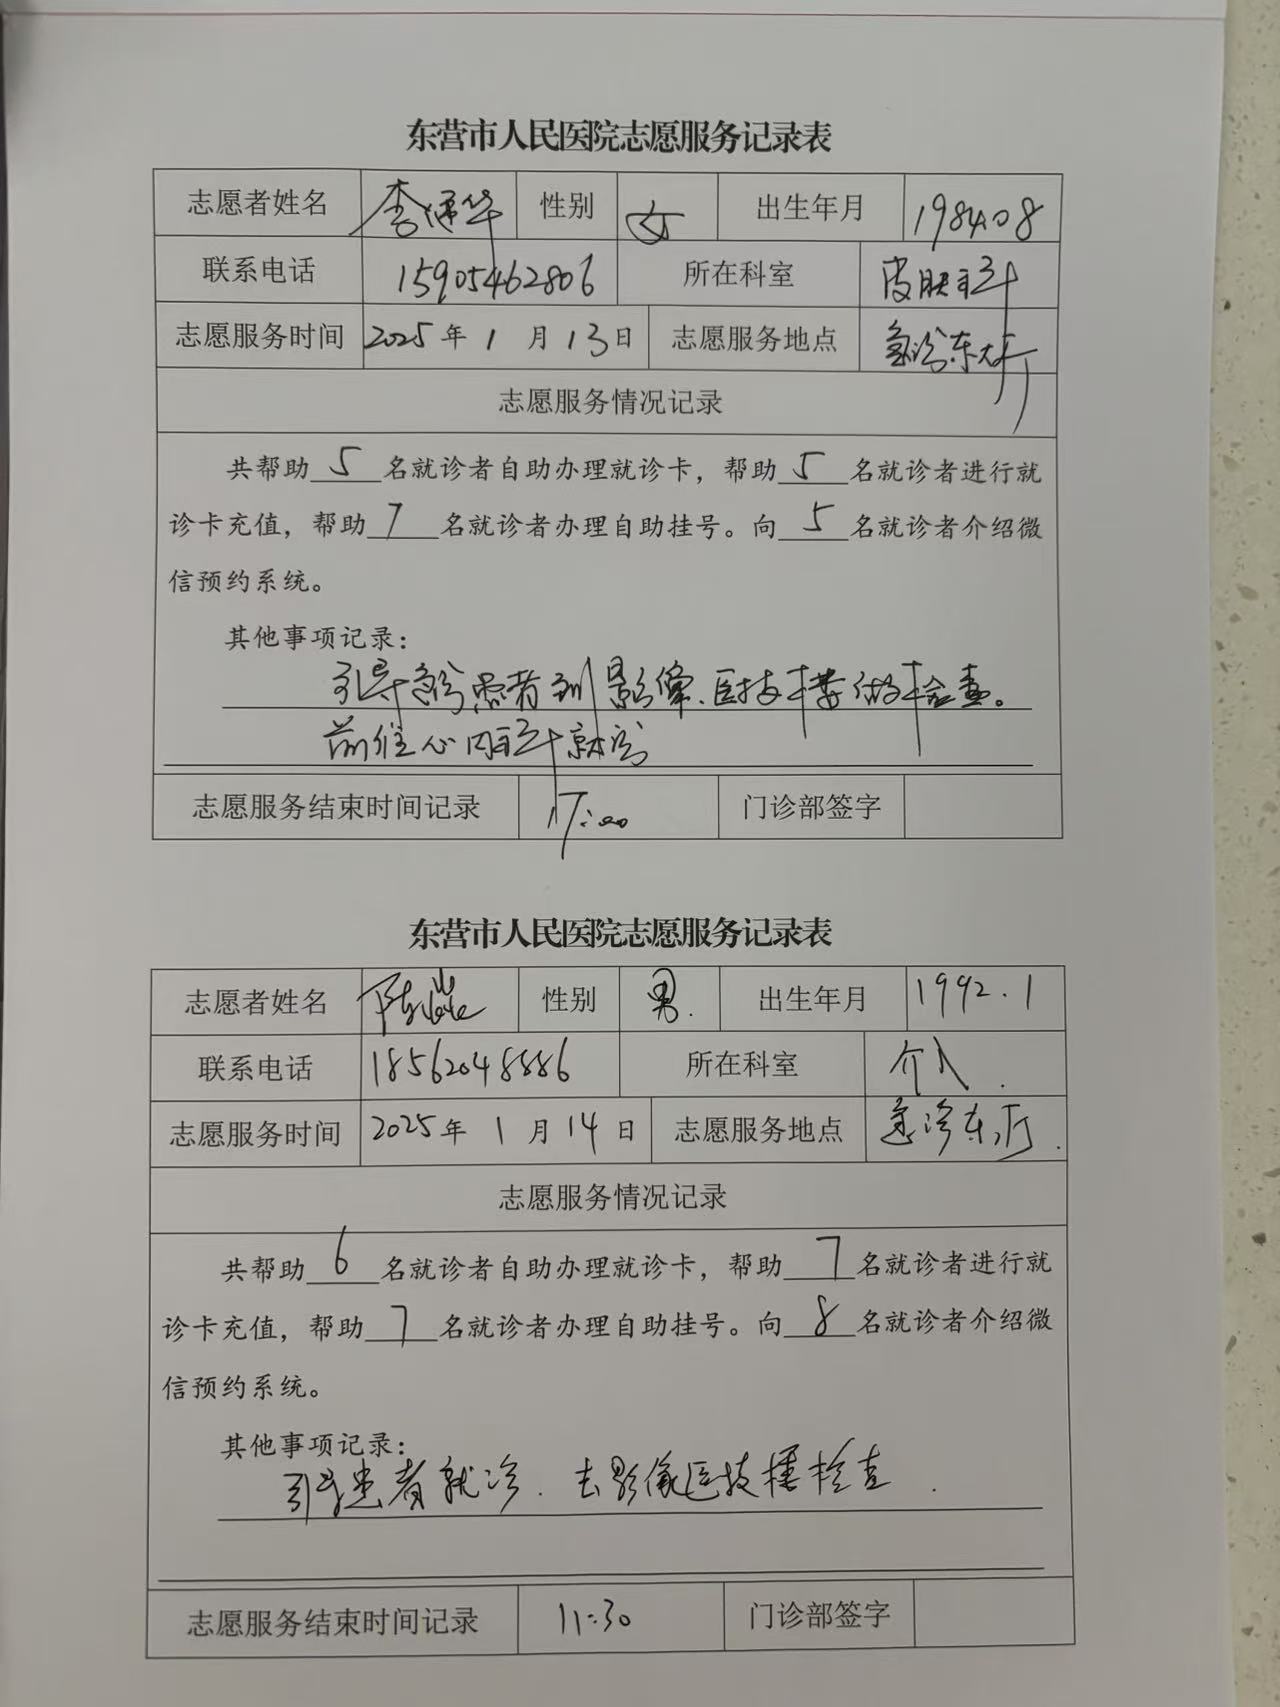 东营市人民医院志愿服务记录表
志愿者姓名 李 华 性别 女 出生年月 1984.08
联系电话 15905462806 所在科室 皮肤科
志愿服务时间 2025年1月13日 志愿服务地点 急诊东大厅
志愿服务情况记录
共帮助5名就诊者自助办理就诊卡，帮助5名就诊者进行就
诊卡充值，帮助7名就诊者办理自助挂号。向5名就诊者介绍微
信预约系统。
其他事项记录：
引导急诊患者到影像、医技楼做检查。
前往心内科就诊
志愿服务结束时间记录 17:00 门诊部签字
东营市人民医院志愿服务记录表
志愿者姓名 陈 性别 男. 出生年月 1992.1
联系电话 18562048886 所在科室 介入.
志愿服务时间 2025年1月14日 志愿服务地点 急诊东厅.
志愿服务情况记录
共帮助6名就诊者自助办理就诊卡，帮助7名就诊者进行就
诊卡充值，帮助7名就诊者办理自助挂号。向8名就诊者介绍微
信预约系统。
其他事项记录：
引导患者就诊.去影像医技楼检查.
志愿服务结束时间记录 11:30 门诊部签字